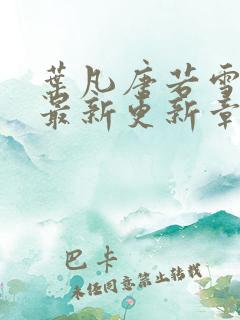 葉凡唐若雪
最新更新章
巴卡
未经同意禁止转载